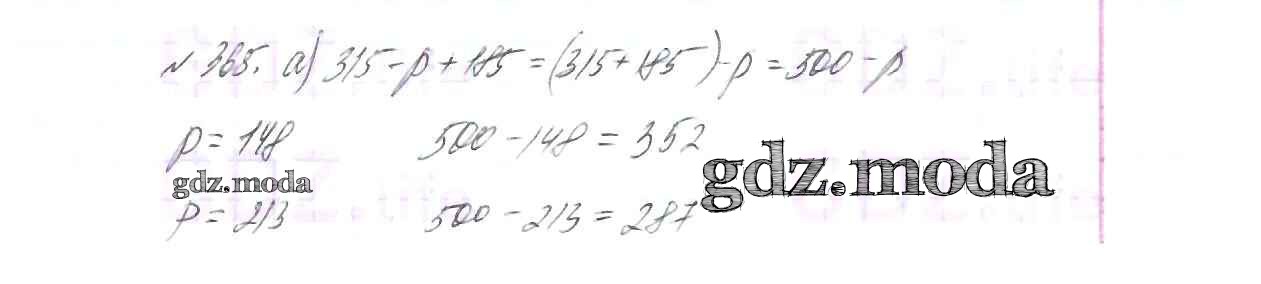 № 365. а) 315 - p + 185 = (315 + 185) - p = 500 - p
p = 148 500 - 148 = 352
gdz.moda gdz.moda
p = 213 500 - 213 = 287